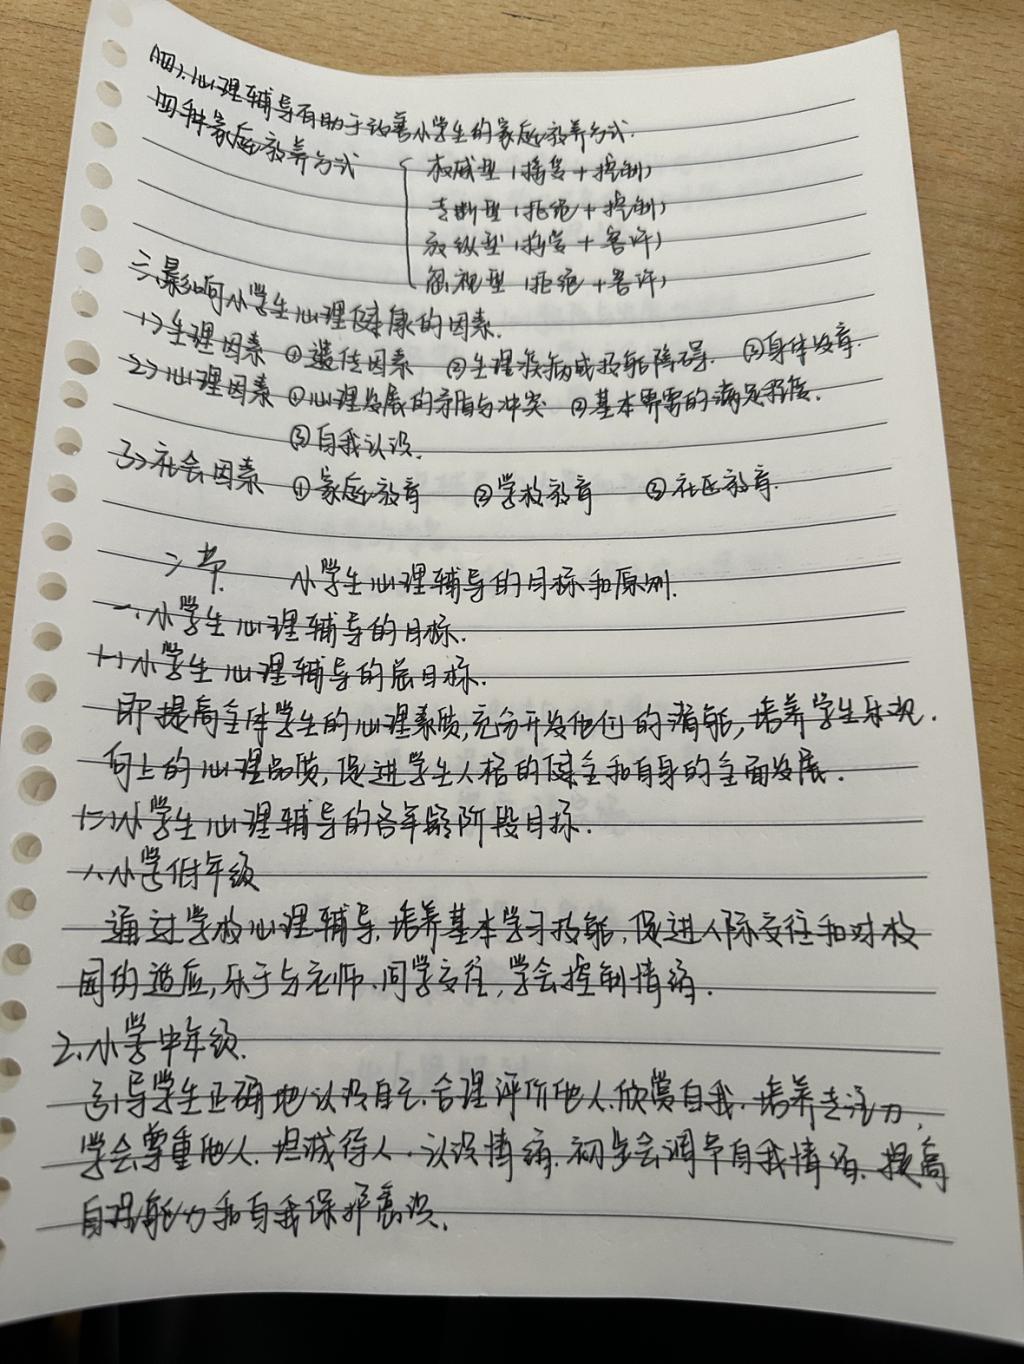 (四)、心理辅导有助于改善小学生的家庭教养方式.
四种家庭教养方式
权威型(接受+控制)
专断型(拒绝+控制)
放纵型(接受+容许)
忽视型(拒绝+容许)
三、影响小学生心理健康的因素.
1>生理因素 ①遗传因素 ②生理疾病或技能障碍. ③身体发育.
2>心理因素 ①心理发展的矛盾与冲突 ②基本需要的满足程度.
③自我认识.
3>社会因素 ①家庭教育 ②学校教育 ③社区教育.
二节 小学生心理辅导的目标和原则.
一、小学生心理辅导的目标.
(一)小学生心理辅导的总目标.
即提高全体学生的心理素质,充分开发他们的潜能,培养学生乐观.
向上的心理品质,促进学生人格的健全和自身的全面发展.
(二)小学生心理辅导的各年龄阶段目标.
1.小学低年级
通过学校心理辅导,培养基本学习技能,促进人际交往和对校
园的适应,乐于与老师、同学交往,学会控制情绪.
2.小学中年级.
引导学生正确地认识自己、合理评价他人、欣赏自我.培养专注力,
学会尊重他人、坦诚待人.认识情绪.初步会调节自我情绪、提高
自理能力和自我保护意识.